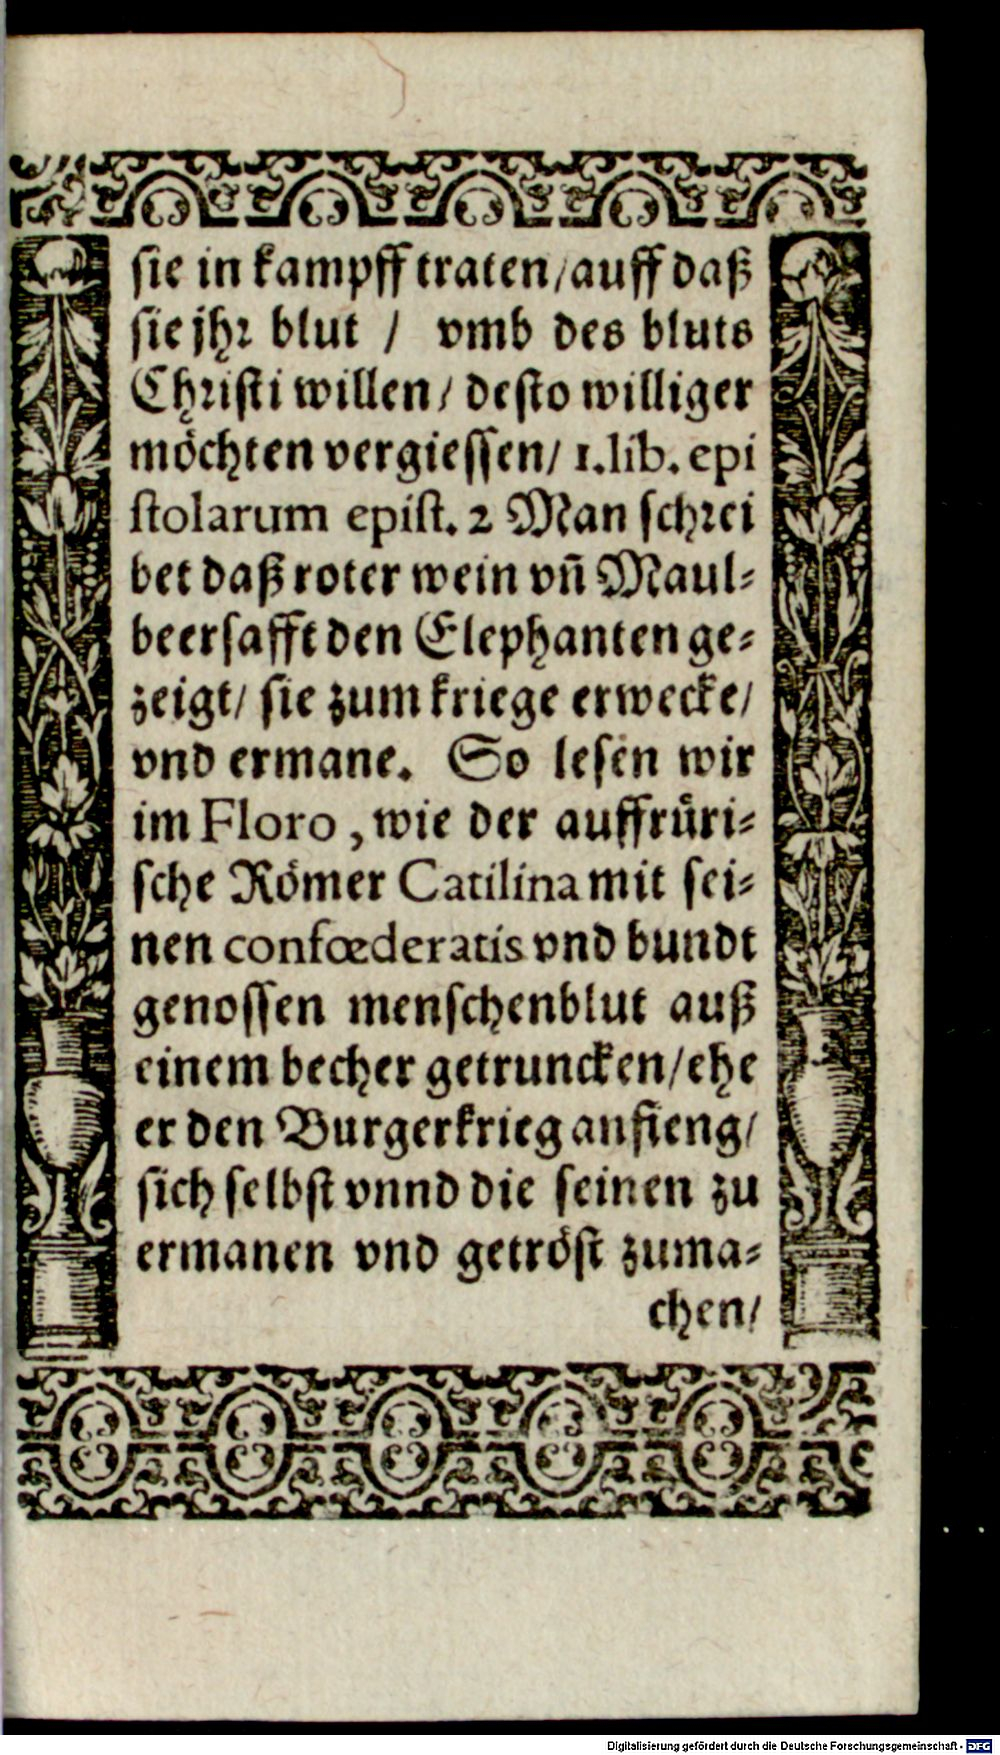 sie in kampff traten/auff daß
sie jhr blut / vmb des bluts
Christi willen/ desto williger
möchten vergiessen/ 1.lib. epi
stolarum epist. 2 Man schrei
bet daß roter wein vñ Maul-
beersafft den Elephanten ge-
zeigt/ sie zum kriege erwecke/
vnd ermane. So lesen wir
im Floro, wie der auffrüri-
sche Römer Catilina mit sei-
nen confœderatis vnd bundt
genossen menschenblut auß
einem becher getruncken/ehe
er den Burgerkrieg anfieng/
sich selbst vnnd die seinen zu
ermanen vnd getröst zuma-
chen/
Digitalisierung gefördert durch die Deutsche Forschungsgemeinschaft - DFG